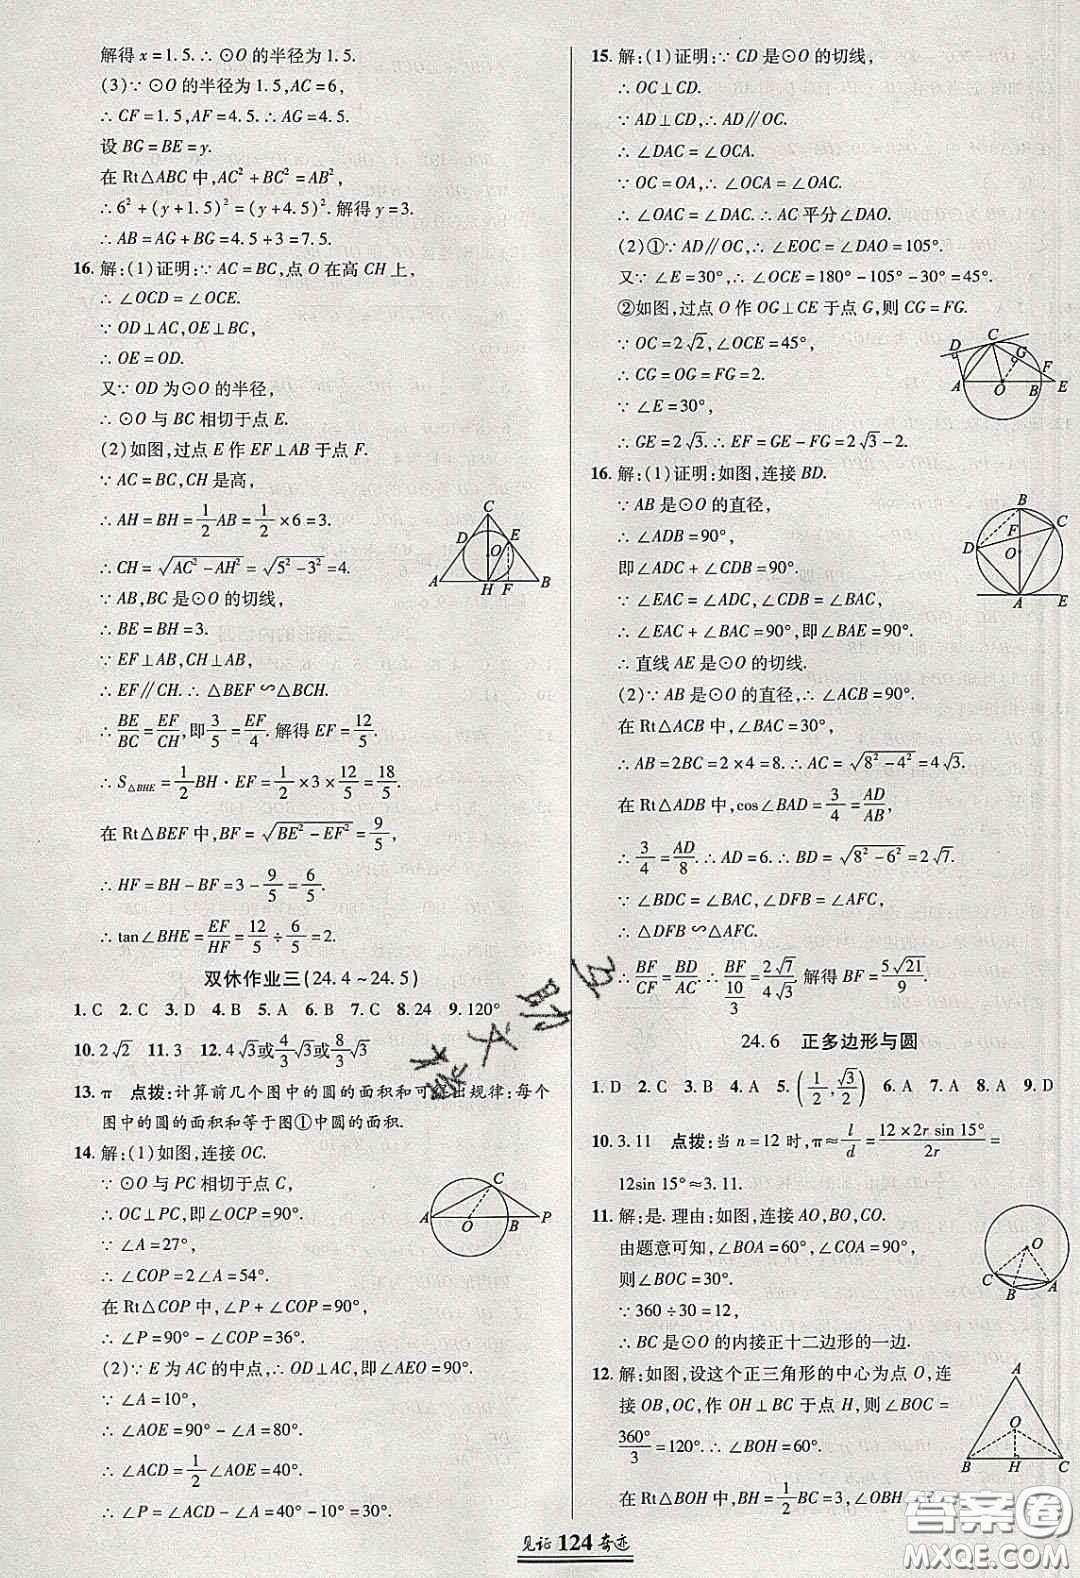 解得x=1.5.∴⊙O的半径为1.5.
(3)∵⊙O的半径为1.5,AC=6,
∴CF=1.5,AF=4.5.∴AG=4.5.
设BG=BE=y.
在Rt△ABC中,AC²+BC²=AB²,
∴6²+(y+1.5)²=(y+4.5)².解得y=3.
∴AB=AG+BG=4.5+3=7.5.
16.解:(1)证明:∵AC=BC,点O在高CH上,
∴∠OCD=∠OCE.
∵OD⊥AC,OE⊥BC,
∴OE=OD.
又∵OD为⊙O的半径,
∴⊙O与BC相切于点E.
(2)如图,过点E作EF⊥AB于点F.
∵AC=BC,CH是高,
∴AH=BH=1/2AB=1/2×6=3.
∴CH=√(AC²-AH²)=√(5²-3²)=4.
∵AB,BC是⊙O的切线,
∴BE=BH=3.
∵EF⊥AB,CH⊥AB,
∴EF∥CH.∴△BEF∽△BCH.
∴BE/BC=EF/CH,即3/5=EF/4.解得EF=12/5.
∴S△BHE=1/2BH·EF=1/2×3×12/5=18/5.
在Rt△BEF中,BF=√(BE²-EF²)=9/5,
∴HF=BH-BF=3-9/5=6/5.
∴tan∠BHE=EF/HF=12/5÷6/5=2.
C D E O A H F B
双休作业三(24.4~24.5)
1.C 2.C 3.D 4.B 5.A 6.B 7.C 8.24 9.120°
10.2√2 11.3 12.4√3或4/3√3或8/3√3
13.π 点拨:计算前几个图中的圆的面积和可得出规律:每个
图中的圆的面积和等于图①中圆的面积.
14.解:(1)如图,连接OC.
∵⊙O与PC相切于点C,
∴OC⊥PC,即∠OCP=90°.
∵∠A=27°,
∴∠COP=2∠A=54°.
在Rt△COP中,∠P+∠COP=90°,
∴∠P=90°-∠COP=36°.
(2)∵E为AC的中点,∴OD⊥AC,即∠AEO=90°.
∵∠A=10°,
∴∠AOE=90°-∠A=80°.
∴∠ACD=1/2∠AOE=40°.
∴∠P=∠ACD-∠A=40°-10°=30°.
C A O B P
15.解:(1)证明:∵CD是⊙O的切线,
∴OC⊥CD.
∵AD⊥CD,∴AD∥OC.
∴∠DAC=∠OCA.
∵OC=OA,∴∠OCA=∠OAC.
∴∠OAC=∠DAC.∴AC平分∠DAO.
(2)①∵AD∥OC,∴∠EOC=∠DAO=105°.
又∵∠E=30°,∴∠OCE=180°-105°-30°=45°.
②如图,过点O作OG⊥CE于点G,则CG=FG.
∵OC=2√2,∠OCE=45°,
∴CG=OG=FG=2.
∵∠E=30°,
∴GE=2√3.∴EF=GE-FG=2√3-2.
D C G F A O B E
16.解:(1)证明:如图,连接BD.
∵AB是⊙O的直径,
∴∠ADB=90°,
即∠ADC+∠CDB=90°.
∵∠EAC=∠ADC,∠CDB=∠BAC,
∴∠EAC+∠BAC=90°,即∠BAE=90°.
∴直线AE是⊙O的切线.
(2)∵AB是⊙O的直径,∴∠ACB=90°.
在Rt△ACB中,∠BAC=30°,
∴AB=2BC=2×4=8.∴AC=√(8²-4²)=4√3.
在Rt△ADB中,cos∠BAD=3/4=AD/AB,
∴3/4=AD/8.∴AD=6.∴BD=√(8²-6²)=2√7.
∵∠BDC=∠BAC,∠DFB=∠AFC,
∴△DFB∽△AFC.
∴BF/CF=BD/AC.∴BF/(10/3)=2√7/4√3.解得BF=5√21/9.
B C F D O A E
24.6 正多边形与圆
1.D 2.C 3.B 4.A 5.(1/2,√3/2) 6.A 7.A 8.A 9.D
10.3.11 点拨:当n=12时,π≈l/d=12×2r sin 15°/2r=
12sin 15°≈3.11.
11.解:是.理由:如图,连接AO,BO,CO.
由题意可知,∠BOA=60°,∠COA=90°,
则∠BOC=30°.
∵360÷30=12,
∴BC是⊙O的内接正十二边形的一边.
O C B A
12.解:如图,设这个正三角形的中心为点O,连
接OB,OC,作OH⊥BC于点H,则∠BOC=
360°/3=120°.∴∠BOH=60°.
在Rt△BOH中,BH=1/2BC=3,∠OBH=
A O B H C
见证124奇迹
答案圈
MXQE.COM